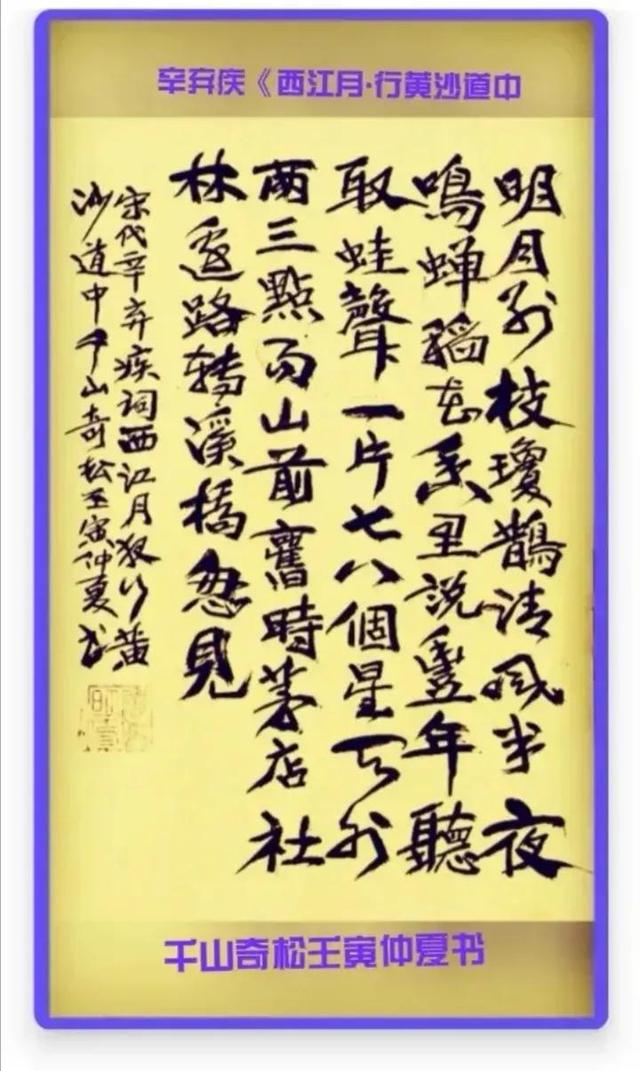 辛弃疾《西江月·行黄沙道中
明月别枝瓊鵲清風半夜
鳴蝉稻花香里説豐年聽
取蛙聲一片七八個星天外
两三點雨山前舊時茅店社
林邊路轉溪橋忽見
宋代辛弃疾词西江月夜行黄
沙道中千山奇松壬寅仲夏书
千山奇松壬寅仲夏书